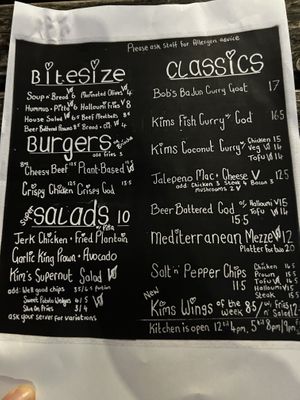 Please ask staff for Allergen advice
Bitesize
Soup n Bread 6 Marinated Olives 4
Hummus + Pitta 6 Halloumi Fries 8
House Salad 6.5 Beef Meatballs 8.5
Beer Battered Prawns 8.5 Bread + Oil 4
Burgers
add fries 3
Cheesy Beef 15 Plant-Based
Crispy Chicken Crispy Cod 13.5
Super Salads 10
Jerk Chicken + Fried Plantain
Garlic King Prawn + Avocado
Kim's Supernut Salad
add: Well good chips 3.5/6.5 portion
Sweet Potato Wedges 4/5
Skin On Fries 3/4
ask your server for variations
Classics
Bob's Bajun Curry Goat 17
Kims Fish Curry Cod 16.5
Kims Coconut Curry Chicken 15
Veg 14
Tofu 14
Jalepeno Mac + Cheese V 12.5
add Chicken 3 Steak 4 Bacon 3
mushrooms 2
Beer Battered Cod or Halloumi 15
15.5 Tofu 14
Mediterranean Mezze 12
Platter for two 20
Salt n Pepper Chips Chicken 14.5
11.5 Prawn 15
Tofu 14
Halloumi 15
Steak 15
New
Kims Wings of the week 8.5/ w/ Fries n' Salad 12
Kitchen is open 12 til 4pm, 5 til 8pm/9pm